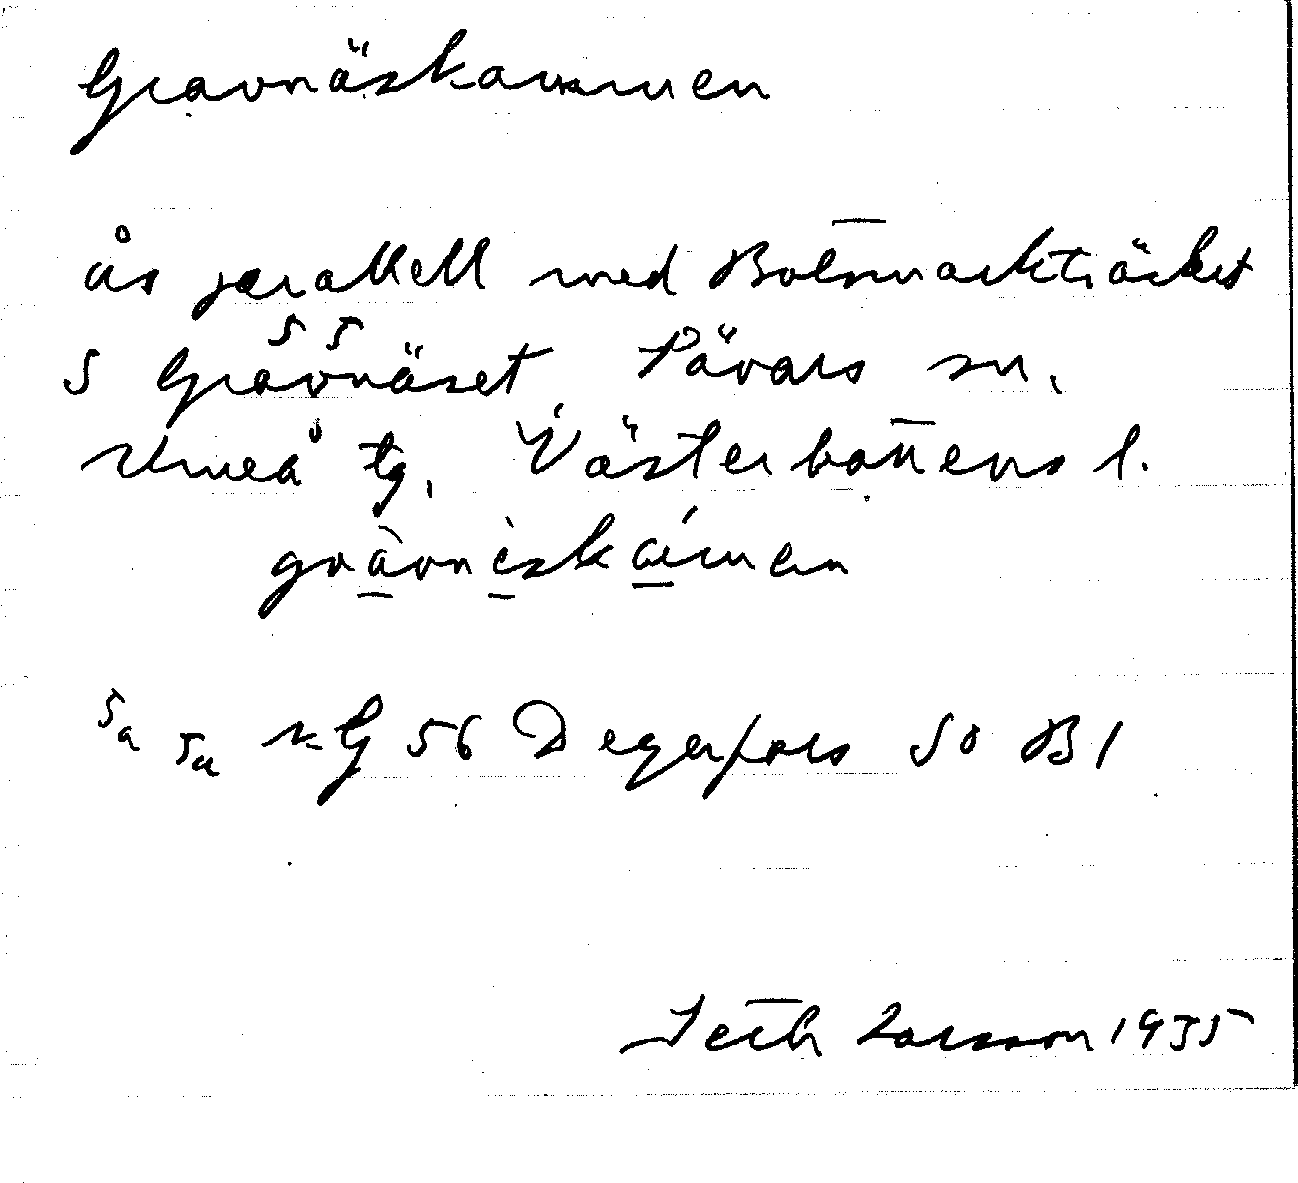 Gravnäskammen
ås parallell med Botsmarkträsket
S Gravnäset Sävars sn.
Umeå tg. Västerbottens l.
gràvnèskámen
5a 5a kG 56 Degerfors SO B1
Seth Larsson 1935